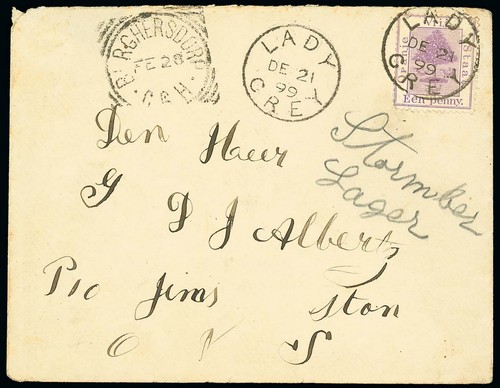 BURGHERSDORP
FE 28
C.G.H.
LADY
DE 21
99
GREY
LADY
DE 21
99
GREY
Vrij Staat
Een penny.
Den Heer
G P J Albertz
Stormber
Lager
P/o Jims ston
O V S